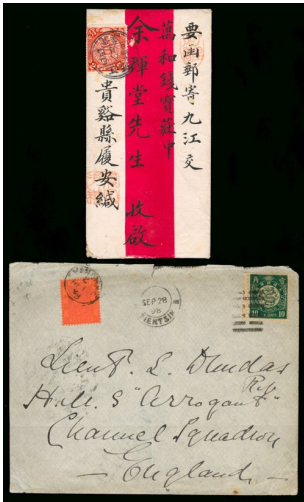 要函郵寄九江交
萬和錢寶莊中
余輝堂先生 收啟
貴谿縣履安緘
SEP 28
98
TIENTSIN
Lieut. L. Dundas
R.N.
H.M.S "Arrogant"
Channel Squadron
England